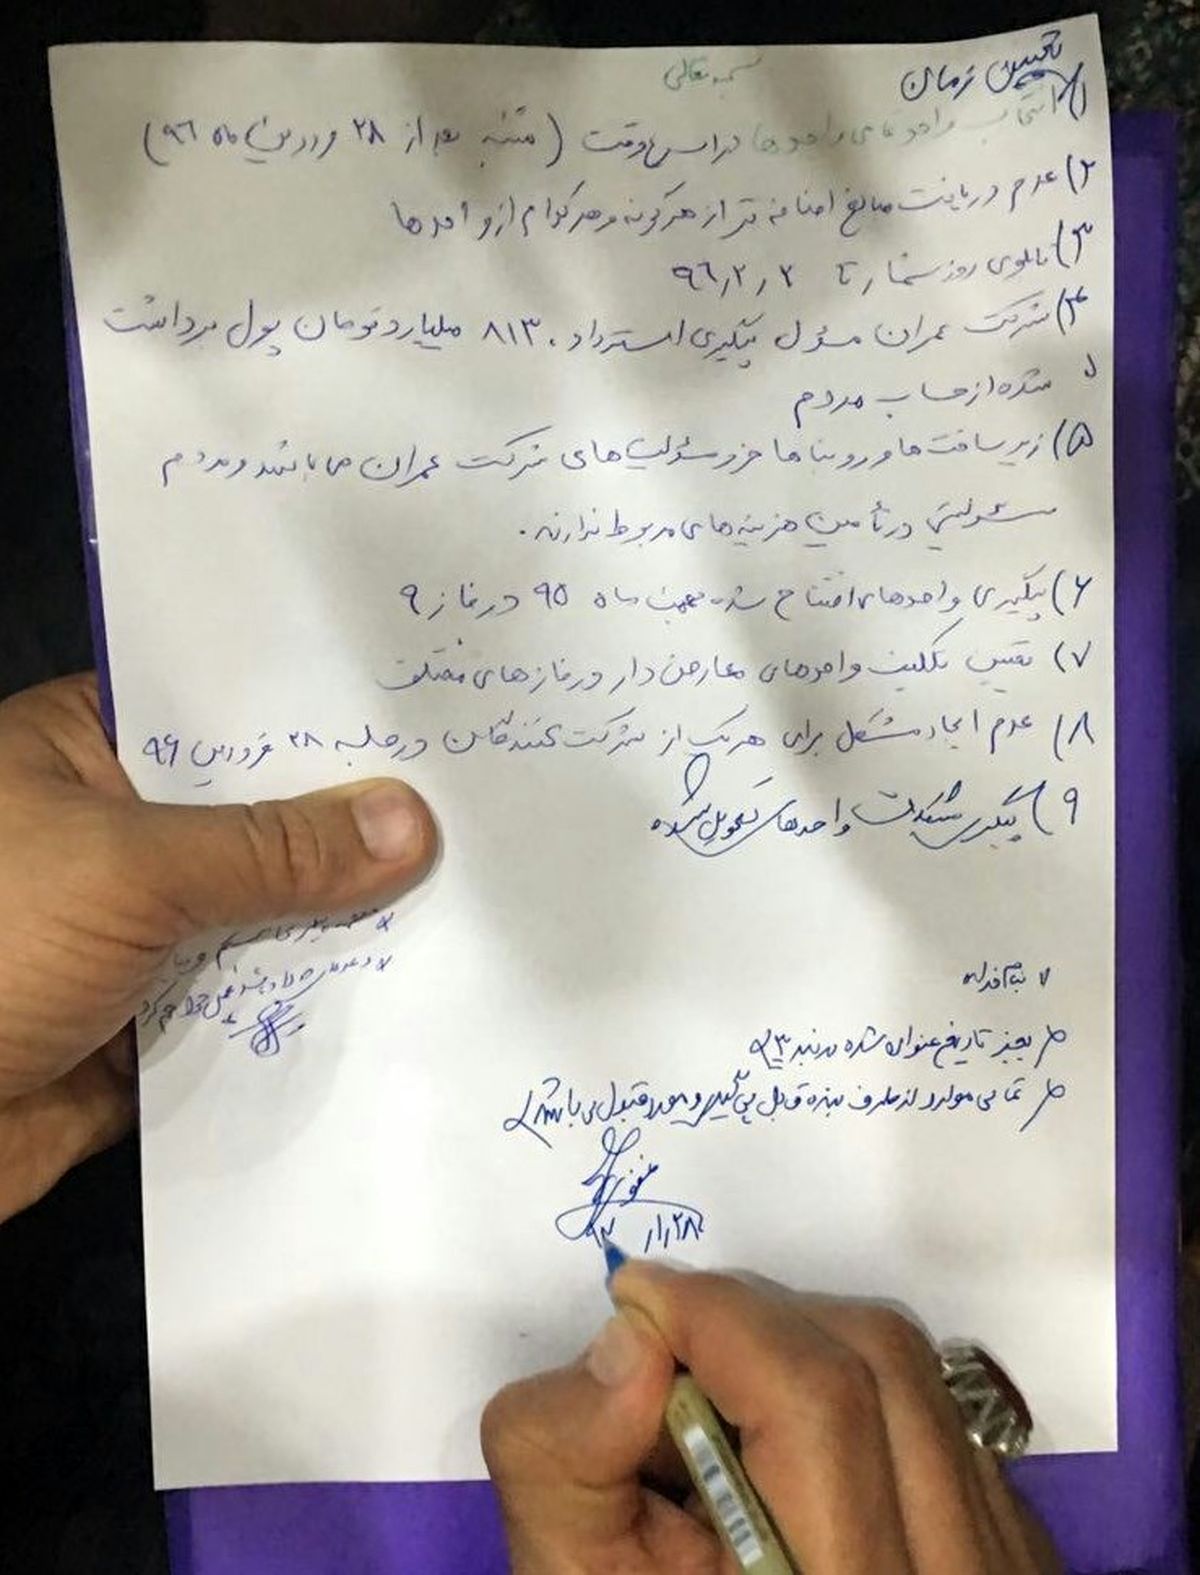 بسمه تعالی
تعیین زمان
۱) انتخاب واحدهای واحدها در اسرع وقت ( بعد از ۲۸ فروردین ماه ۹۶)
۲) عدم دریافت مبالغ اضافه تر از هرگونه و هر کدام از واحدها
۳) تابلوی روزشمار تا ۹۶٫۲٫۲
۴) شرکت عمران مسؤل پیگیری استرداد ۸۱۳۰ میلیارد تومان پول برداشت
شده از حساب مردم
۵) زیرساخت ها و روبناها جزو مسؤلیتهای شرکت عمران می باشد و مردم
مسئولیتی در تأمین هزینه های مربوط ندارند.
۶) پیگیری واحدهای افتتاح شده بهمن ماه ۹۵ در فاز ۹
۷) تعیین تکلیف واحدهای معارض دار در فازهای مختلف
۸) عدم ایجاد مشکل برای هر یک از شرکت کنندگان در جلسه ۲۸ فروردین ۹۶
۹) پیگیری مشکلات واحدهای تحویل شده
بنام خدا
بجز تاریخ عنوان شده در بند ۳
تمامی موارد از طرف بنده قابل پیگیری و مورد قبول می باشد
۲۸٫۱٫